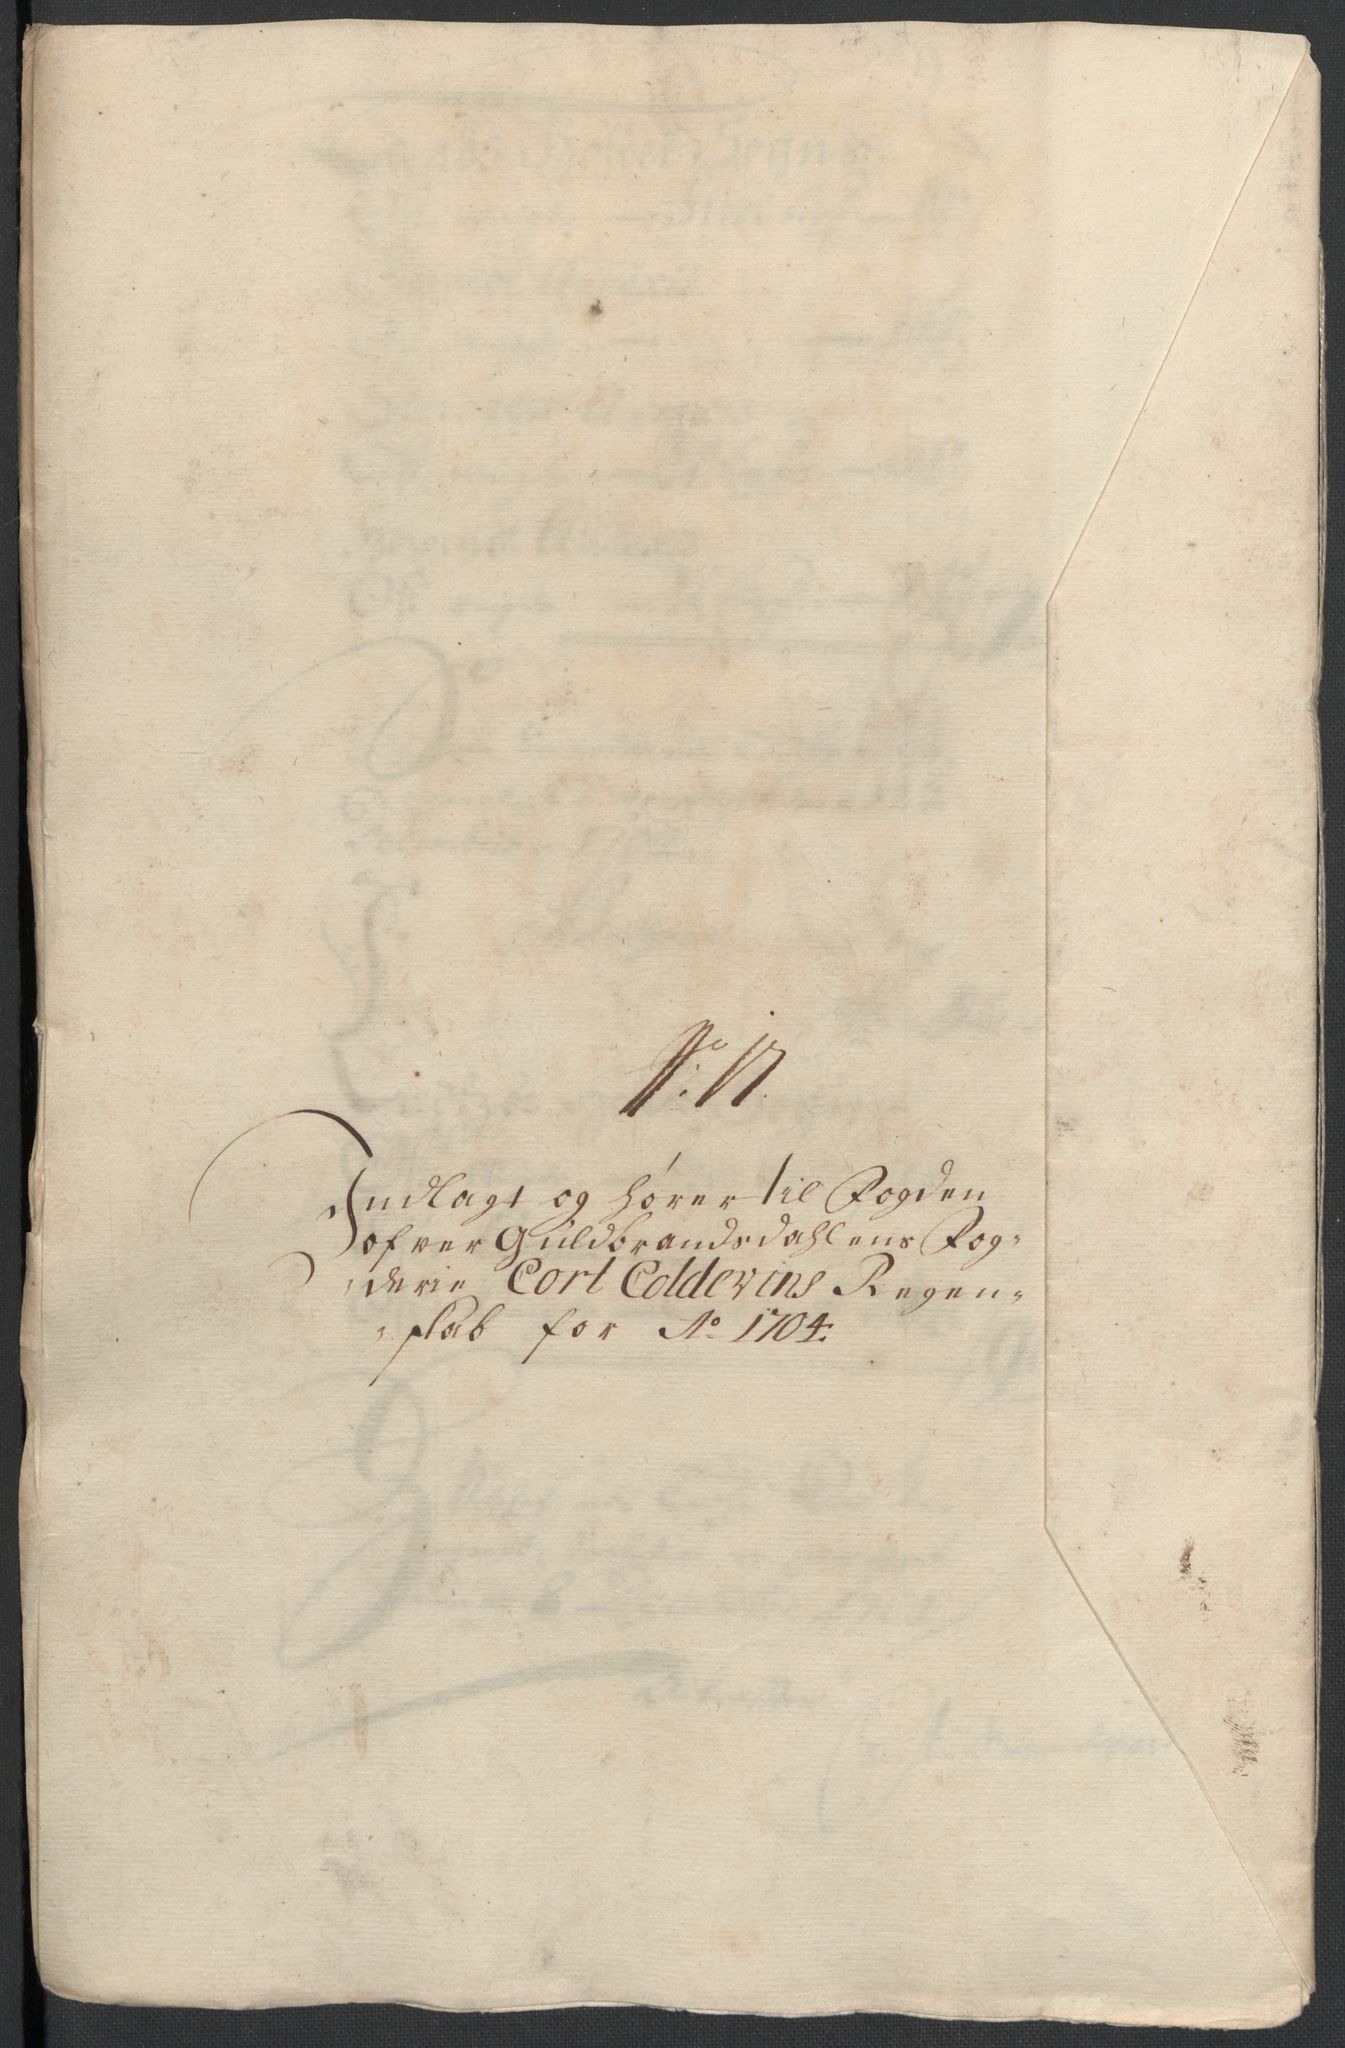 No: 17.
Indlagt og hører til Fogden
ofver Guldbrandsdahlens Fog-
derie Cort Coldevins Regen-
skab for Ao 1704.